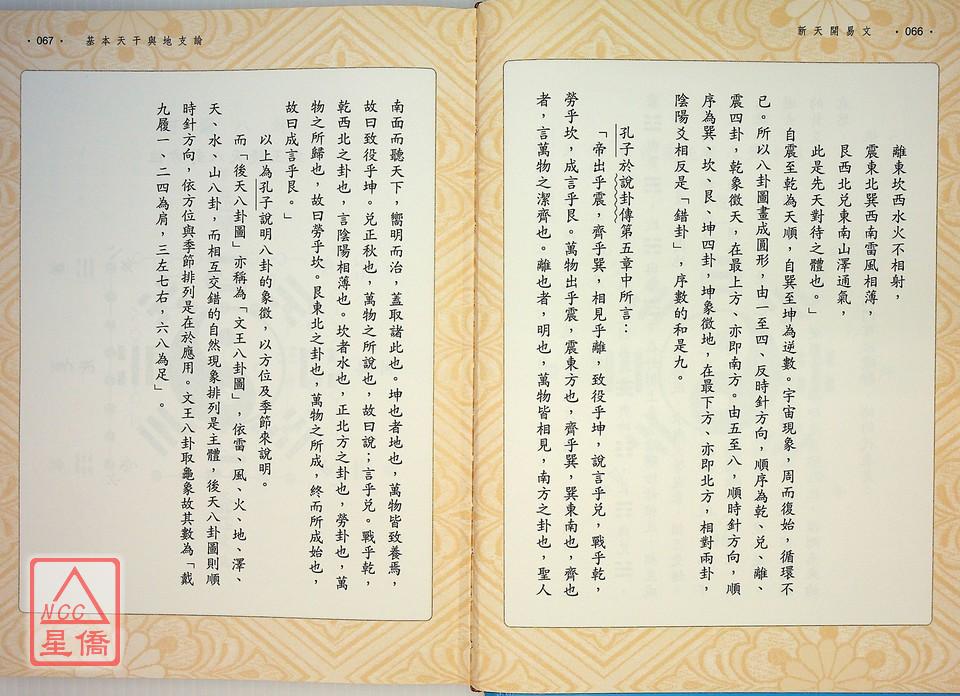 新天開易文 ·066·
離東坎西水火不相射，
震東北巽西南雷風相薄，
艮西北兌東南山澤通氣，
此是先天對待之體也。」
自震至乾為天順，自巽至坤為逆數。宇宙現象，周而復始，循環不
已。所以八卦圖畫成圓形，由一至四、反時針方向，順序為乾、兌、離、
震四卦，乾象徵天，在最上方、亦即南方。由五至八，順時針方向，順
序為巽、坎、艮、坤四卦，坤象徵地，在最下方、亦即北方，相對兩卦，
陰陽爻相反是「錯卦」，序數的和是九。
孔子於說卦傳第五章中所言：
「帝出乎震，齊乎巽，相見乎離，致役乎坤，說言乎兌，戰乎乾，
勞乎坎，成言乎艮。萬物出乎震，震東方也，齊乎巽，巽東南也，齊也
者，言萬物之潔齊也。離也者，明也，萬物皆相見，南方之卦也，聖人
·067· 基本天干與地支論
南面而聽天下，嚮明而治，蓋取諸此也。坤也者地也，萬物皆致養焉，
故曰致役乎坤。兌正秋也，萬物之所說也，故曰說；言乎兌。戰乎乾，
乾西北之卦也，言陰陽相薄也。坎者水也，正北方之卦也，勞卦也，萬
物之所歸也，故曰勞乎坎。艮東北之卦也，萬物之所成，終而所成始也，
故曰成言乎艮。」
以上為孔子說明八卦的象徵，以方位及季節來說明。
而「後天八卦圖」亦稱為「文王八卦圖」，依雷、風、火、地、澤、
天、水、山八卦，而相互交錯的自然現象排列是主體，後天八卦圖則順
時針方向，依方位與季節排列是在於應用。文王八卦取龜象故其數為「戴
九履一、二四為肩，三左七右，六八為足」。
NCC
星僑